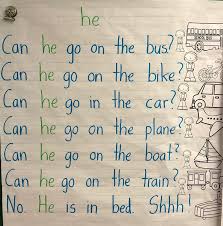 he
Can he go on the bus?
Can he go on the bike?
Can he go in the car?
Can he go on the plane?
Can he go on the boat?
Can he go on the train?
No. He is in bed. Shhh!